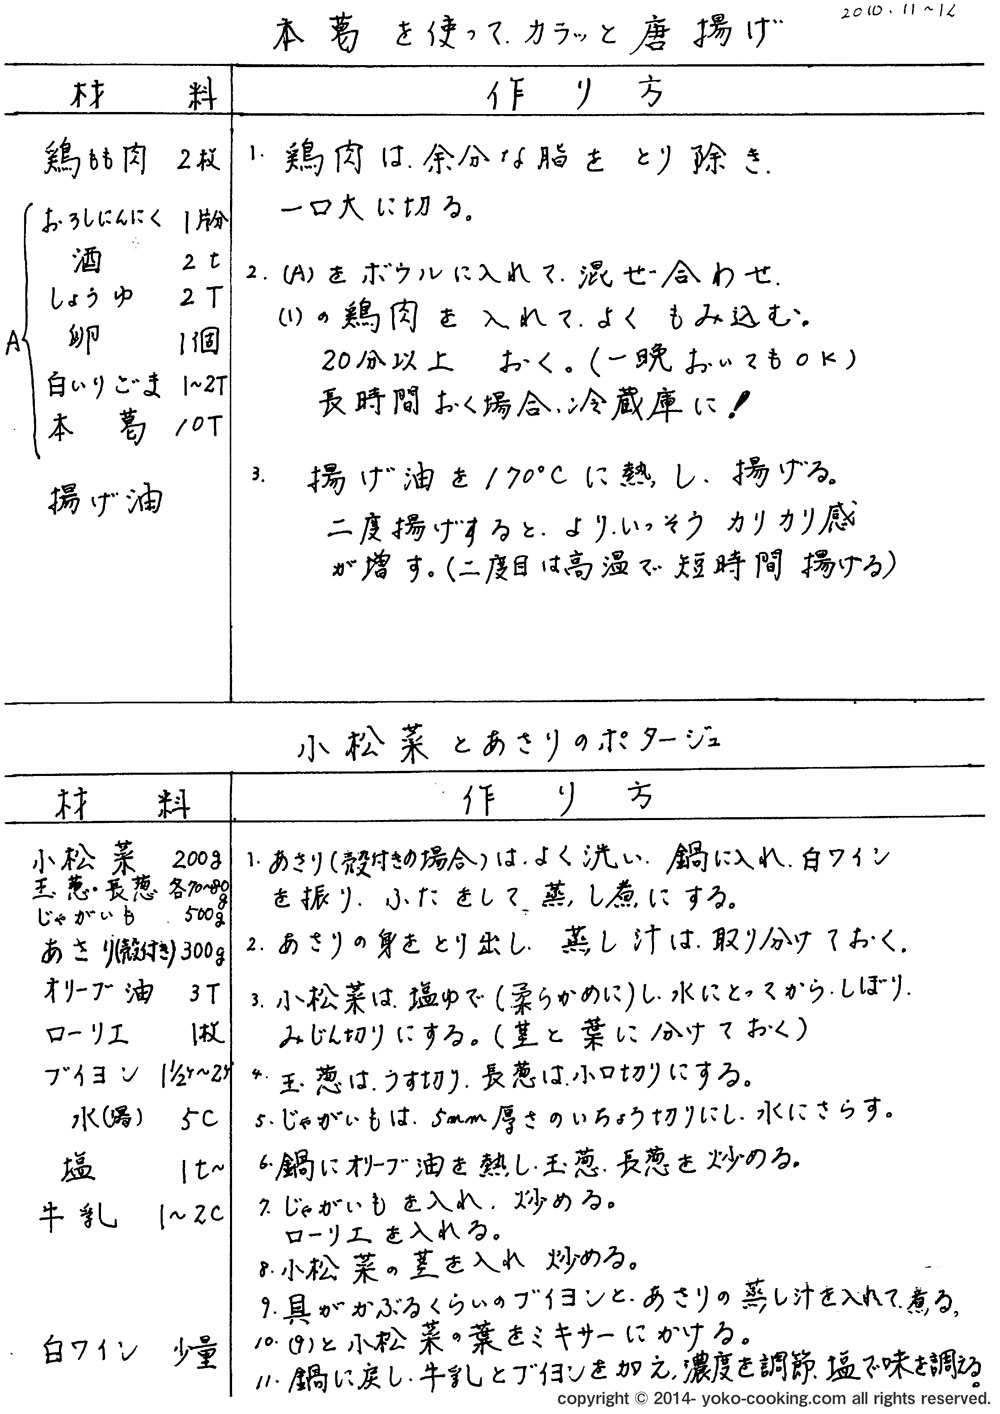 2010.11~12
本葛を使って、カラッと唐揚げ
材料
作り方
鶏もも肉 2枚
A
おろしにんにく 1片分
酒 2t
しょうゆ 2T
卵 1個
白いりごま 1~2T
本葛 10T
揚げ油
1. 鶏肉は、余分な脂をとり除き、
一口大に切る。
2. (A)をボウルに入れて、混ぜ合わせ、
(1)の鶏肉を入れて、よくもみ込む。
20分以上 おく。(一晩おいてもOK)
長時間おく場合、冷蔵庫に!
3. 揚げ油を170℃に熱し、揚げる。
二度揚げすると、より、いっそうカリカリ感
が増す。(二度目は高温で短時間揚げる)
小松菜とあさりのポタージュ
材料
作り方
小松菜 200g
玉葱・長葱 各70~80g
じゃがいも 500g
あさり(殻付き) 300g
オリーブ油 3T
ローリエ 1枚
ブイヨン 1½ケ~2ケ
水(湯) 5C
塩 1t~
牛乳 1~2C
白ワイン 少量
1. あさり(殻付きの場合)は、よく洗い、鍋に入れ、白ワイン
を振り、ふたをして、蒸し煮にする。
2. あさりの身をとり出し、蒸し汁は、取り分けておく。
3. 小松菜は、塩ゆで(柔らかめに)し、水にとってから、しぼり、
みじん切りにする。(茎と葉に分けておく)
4. 玉葱は、うす切り、長葱は、小口切りにする。
5. じゃがいもは、5mm厚さのいちょう切りにし、水にさらす。
6. 鍋にオリーブ油を熱し、玉葱、長葱を炒める。
7. じゃがいもを入れ、炒める。
ローリエを入れる。
8. 小松菜の茎を入れ 炒める。
9. 具がかぶるくらいのブイヨンと、あさりの蒸し汁を入れて、煮る。
10. (9)と小松菜の葉をミキサーにかける。
11. 鍋に戻し、牛乳とブイヨンを加え、濃度を調節、塩で味を調える。
copyright © 2014- yoko-cooking.com all rights reserved.